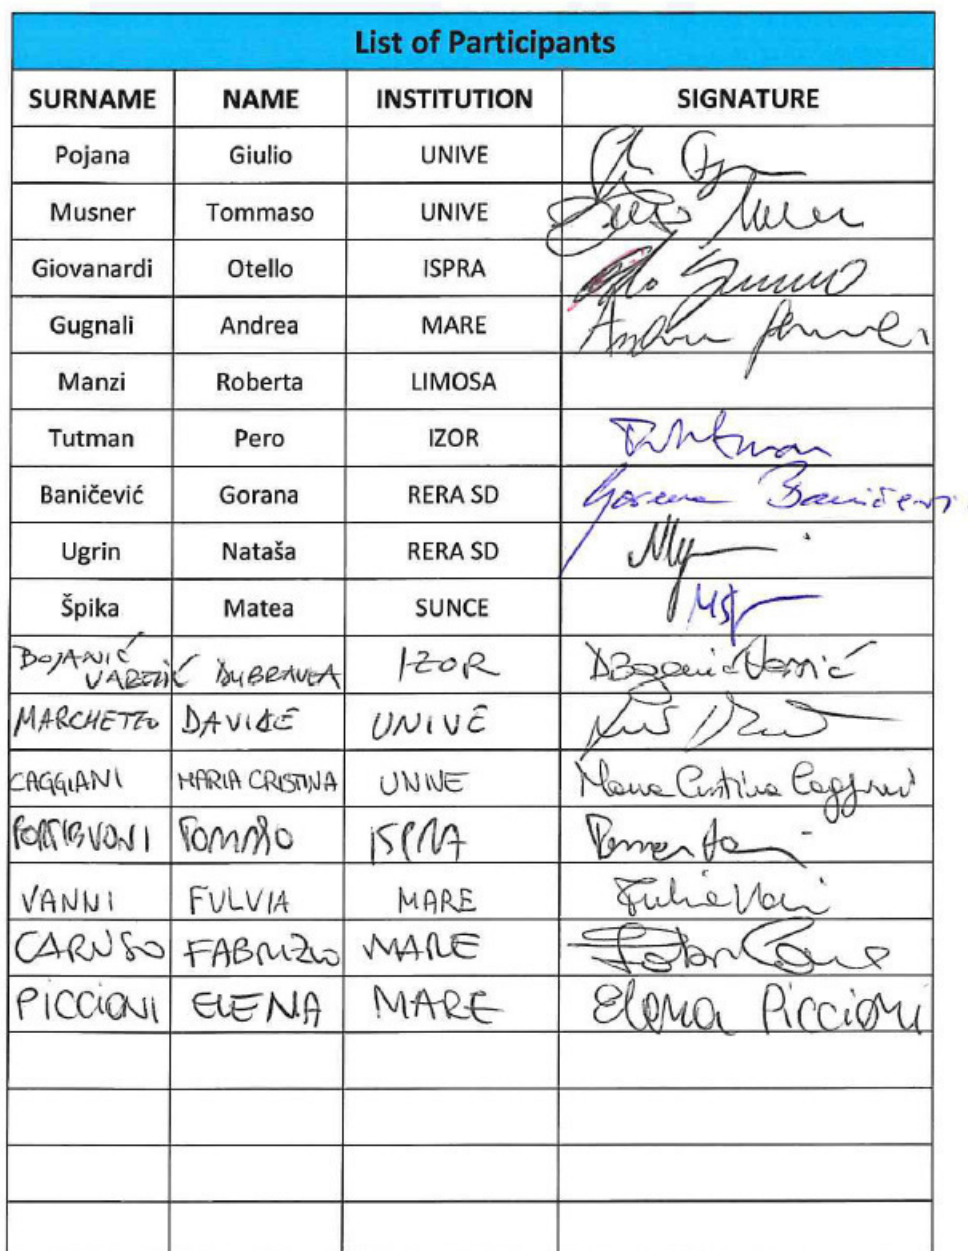 List of Participants
SURNAME NAME INSTITUTION SIGNATURE
Pojana Giulio UNIVE
Musner Tommaso UNIVE
Giovanardi Otello ISPRA
Gugnali Andrea MARE Andrea
Manzi Roberta LIMOSA
Tutman Pero IZOR Tutman
Baničević Gorana RERA SD Gorana Baničević
Ugrin Nataša RERA SD
Špika Matea SUNCE
BOJANIĆ
VAREZIĆ DUBRAVKA IZOR DBojanić Varezić
MARCHETTO DAVIDE UNIVE
CAGGIANI MARIA CRISTINA UNIVE Maria Cristina Caggiani
FORTIBUONI TOMASO ISPRA
VANNI FULVIA MARE Fulvia Vanni
CARUSO FABRIZIO MARE
PICCIONI ELENA MARE Elena Piccioni